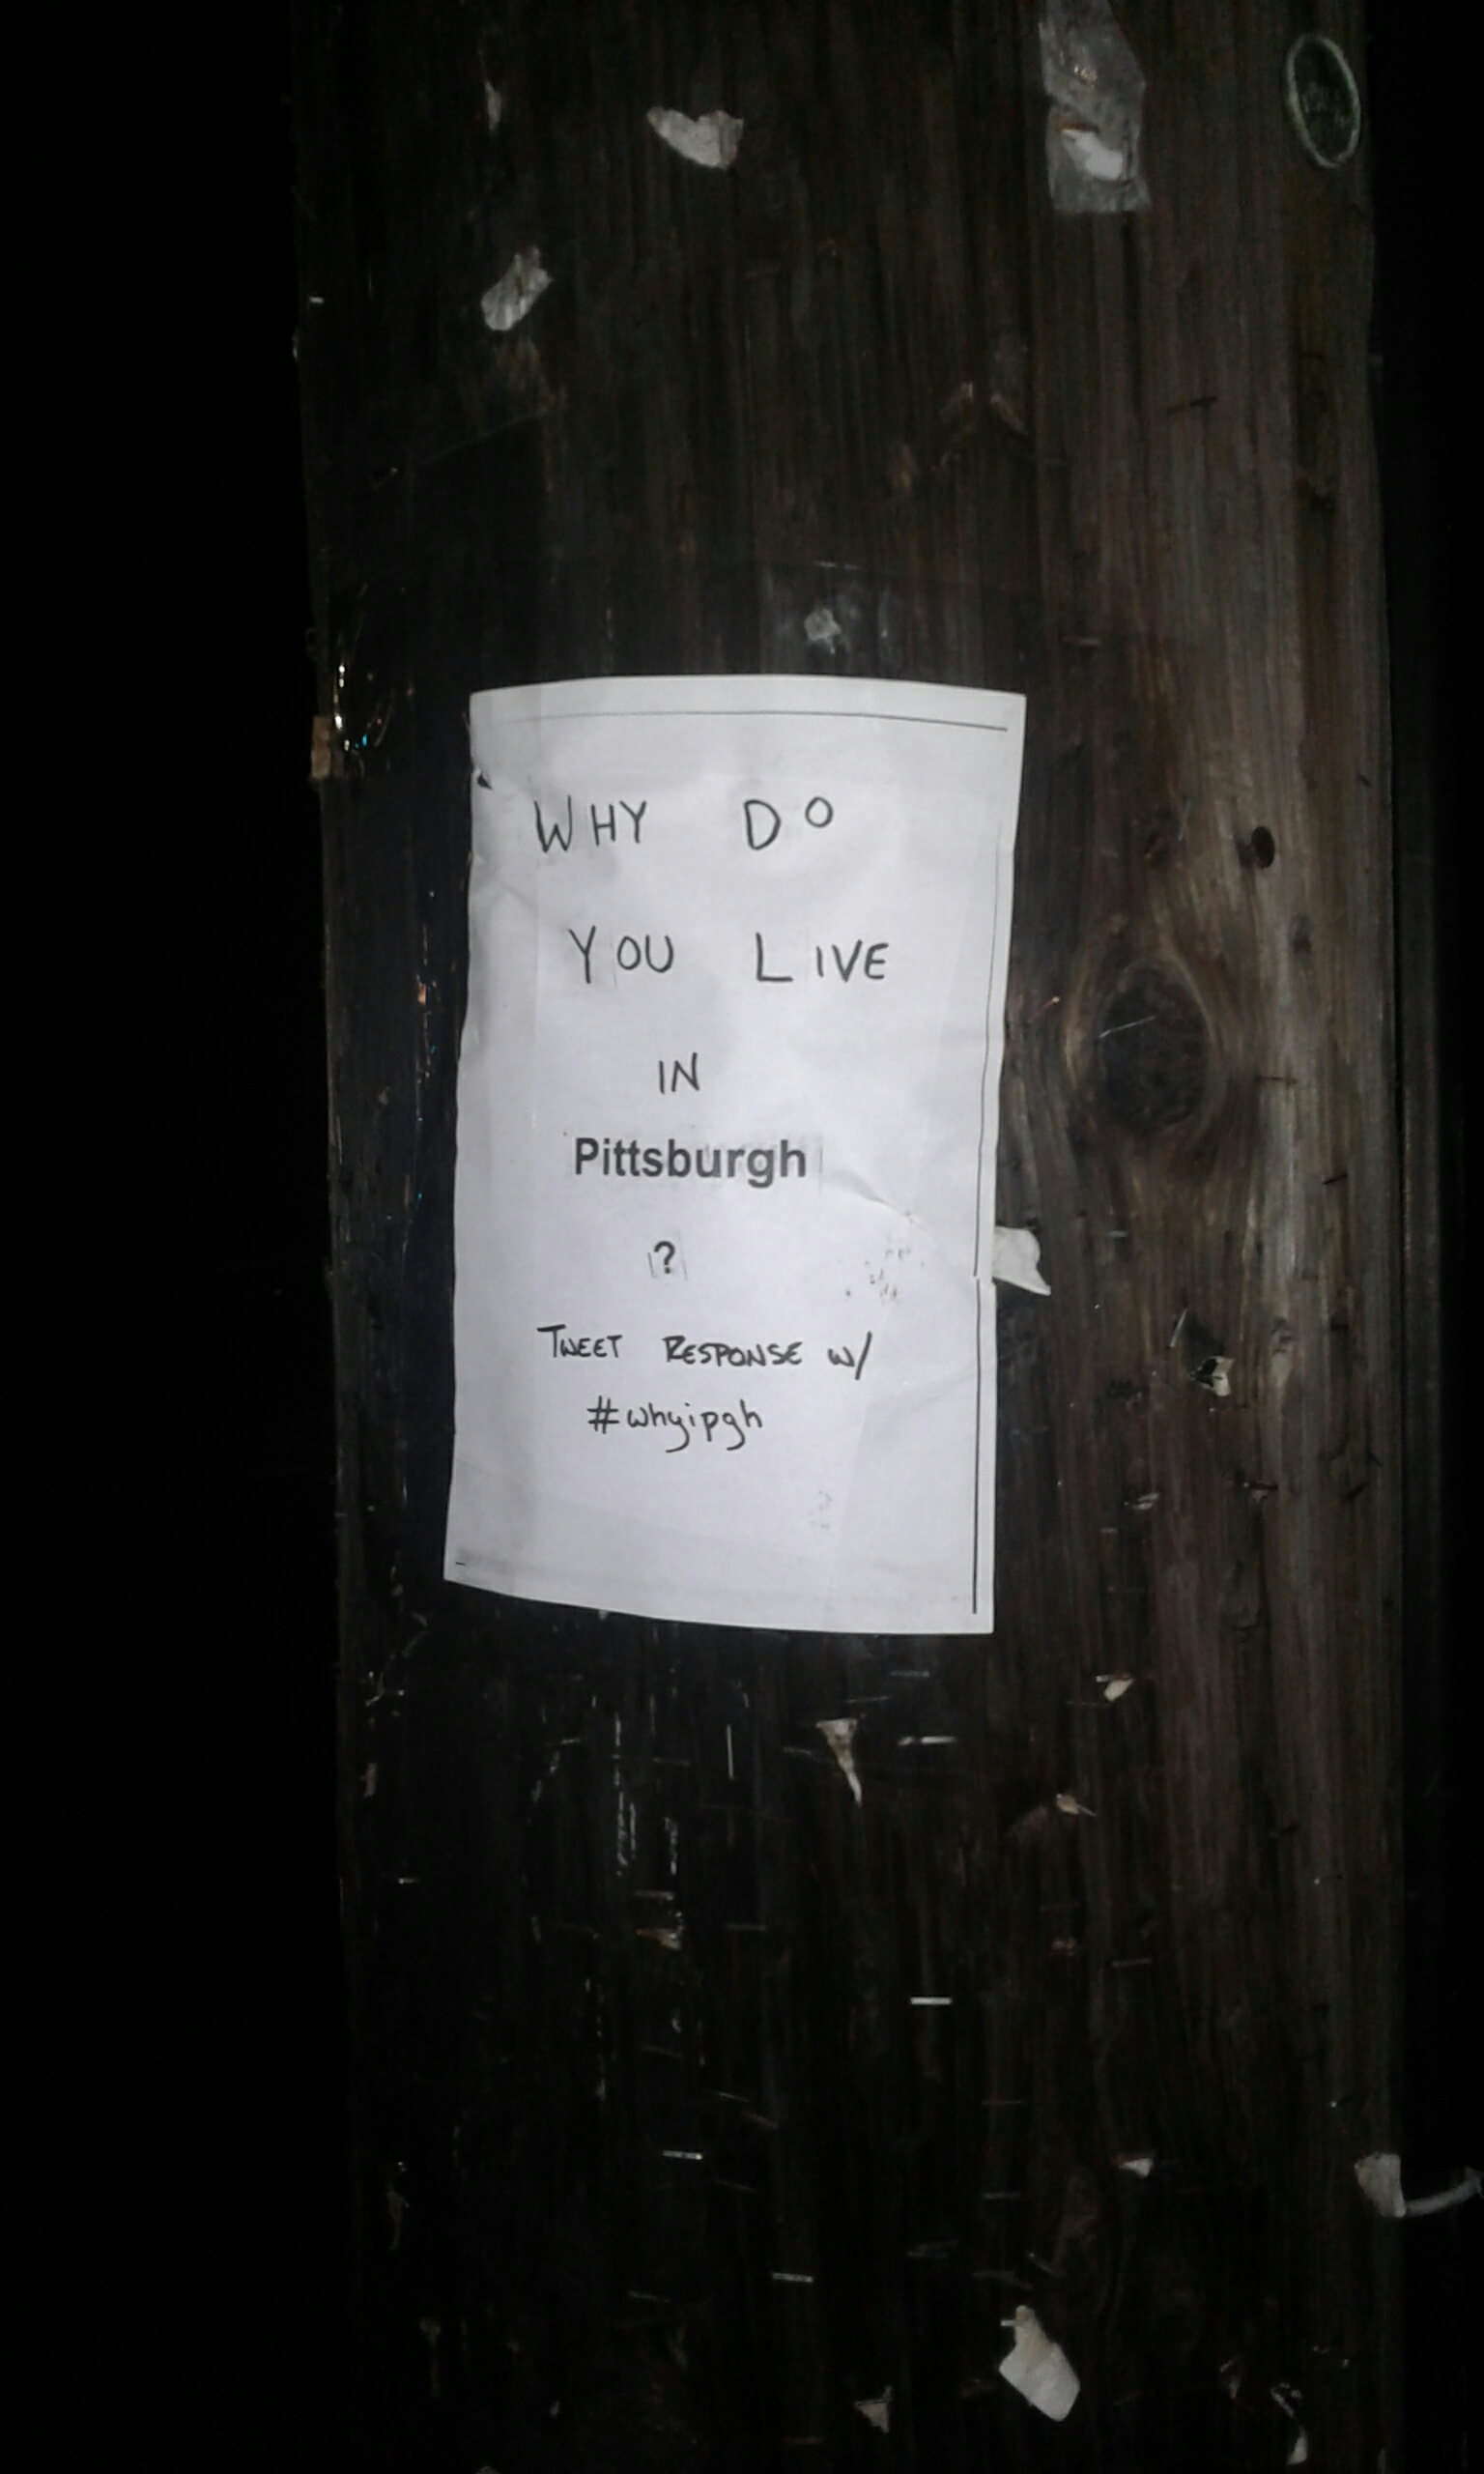 WHY DO
YOU LIVE
IN
Pittsburgh
?
TWEET RESPONSE W/
#whyipgh